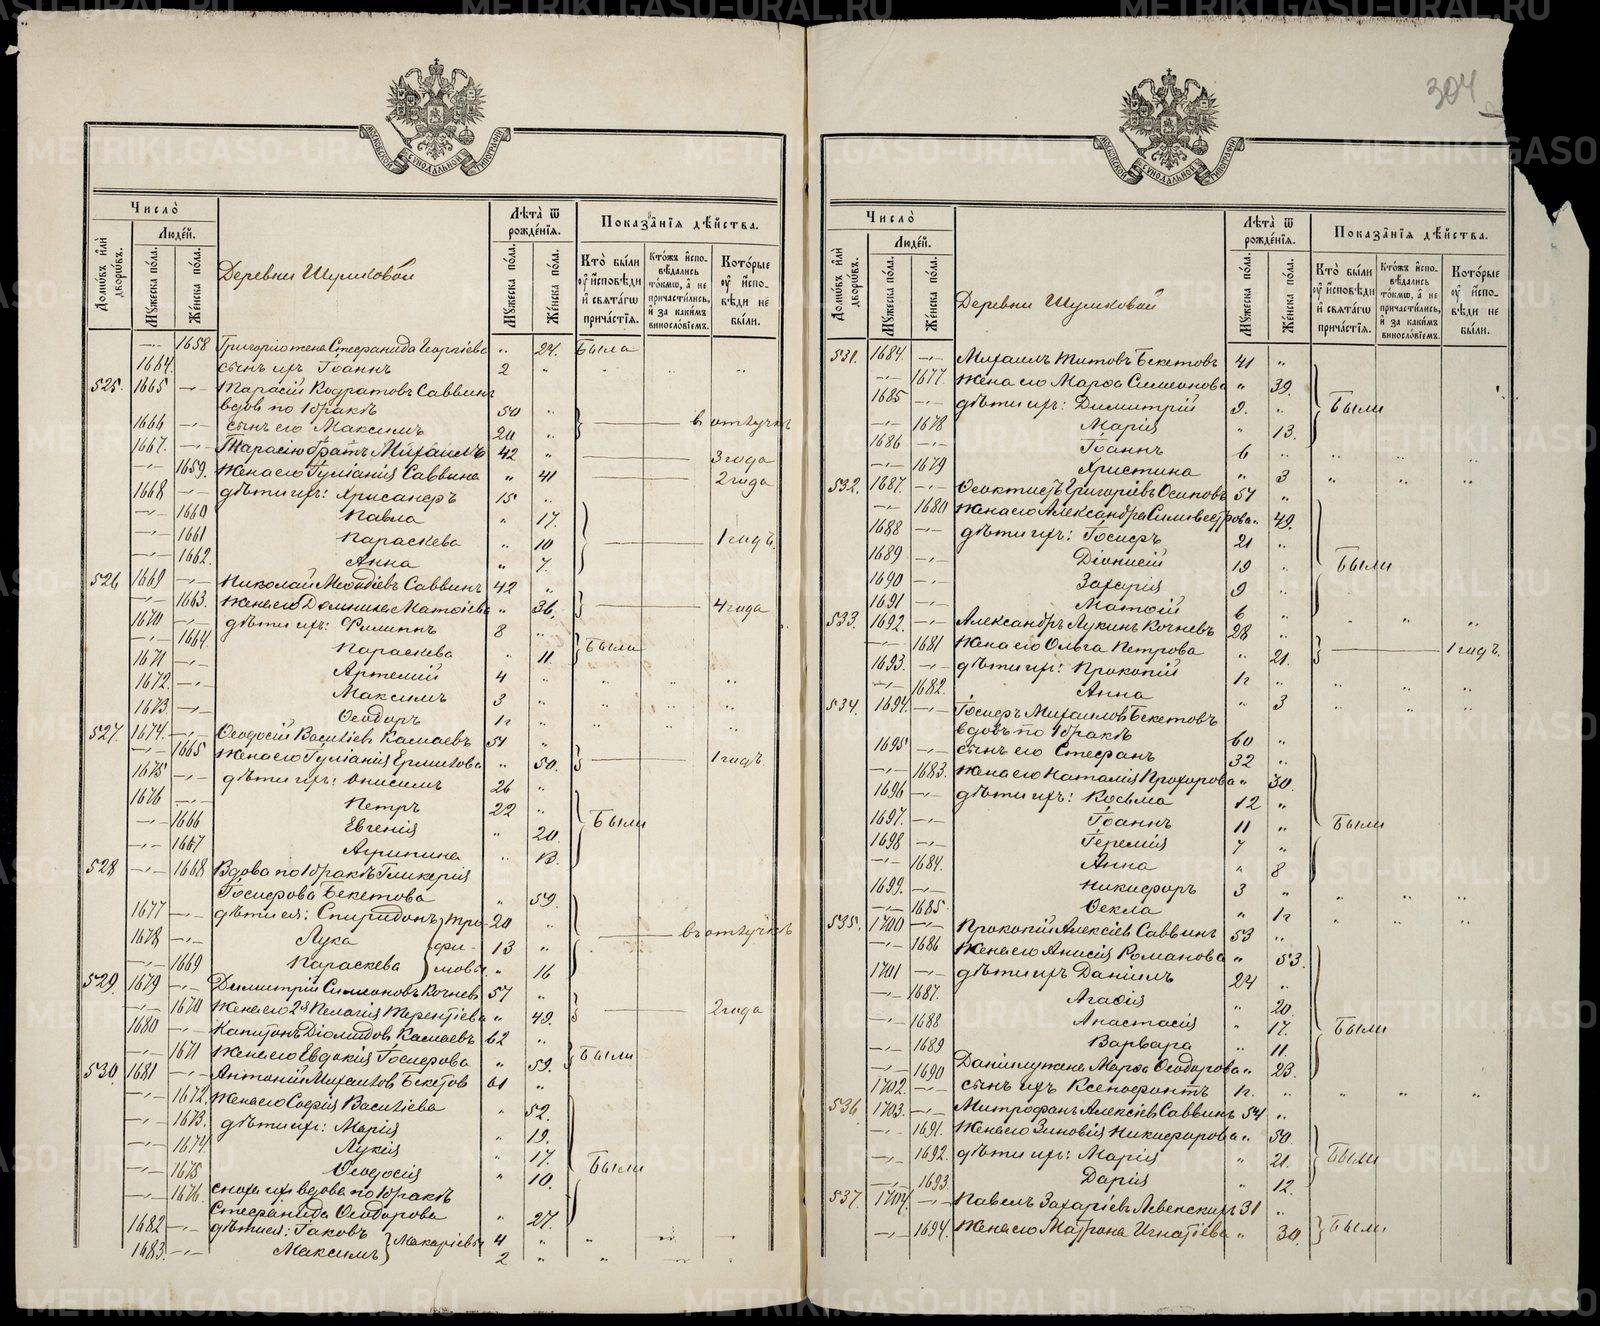 304
МОСКОВСКОЙ СѴНОДАЛЬНОЙ ТИПОГРАФІИ
Число̀
Домѡвъ и҆лѝ дворѡвъ.
Люде́й.
Мꙋжеска по́ла.
Же́нска по́ла.
Деревни Шумковой
Лѣта̀ ѿ рожде́нїѧ.
Мꙋжеска по́ла.
Же́нска по́ла.
Показа̑нїѧ дѣ́йства.
Кто̀ бы́ли ᲂу҆ и҆́сповѣди и҆ свѧта́гѡ прича́стїѧ.
Кто́жъ и҆спо-вѣ́дались то́кмѡ, а҆ не причасти́лись, и҆ за каки́мъ винослѡ́вїемъ.
Кото́рые ᲂу҆ и҆́спо-вѣди не бы́ли.
—„— 1658 Григорію жена Стефанида Георгіева „ 24. Была
1664. сынъ ихъ Іоаннъ 2 „
525. 1665 —„— Тарасій Кодратовъ Саввинъ
вдов по 1 бракѣ 50 „
1666 —„— сынъ его Максимъ 20 „ в отлучкѣ
1667. —„— Тарасію братъ Михаилъ 42 „ 3 года
—„— 1659. Жена его Іуліанія Саввина „ 41 2 года
1668 —„— дѣти ихъ: Хрисанфъ 15 „
—„— 1660 Павла „ 17.
—„— 1661 Параскева „ 10 1 годъ
—„— 1662. Анна „ 7.
526 1669 —„— Николай Меѳодіевъ Саввинъ 42 „
—„— 1663. Жена его Домника Матѳіева „ 36. 4 года
1670 —„— дѣти ихъ: Филиппъ 8 „
—„— 1664. Параскева „ 11. Были
1671 —„— Артемій 4 „
1672. —„— Максимъ 3 „
1673 —„— Ѳеодоръ 1 г „
527 1674. —„— Ѳеодосій Васильевъ Камаевъ 51 „
—„— 1665 Жена его Іуліанія Ермилова „ 50. 1 годъ
1675 —„— дѣти ихъ: Онисимъ 26 „
1676 —„— Петръ 22 „
—„— 1666 Евгенія „ 20. Были
—„— 1667 Агрипина „ 13.
528 —„— 1668 Вдова по 1 бракѣ Гликерія
Іосифова Бекетова „ 59.
1677 —„— дѣти ея: Спиридонъ Тро- 20 „
1678 —„— Лука фи- 13 „ въ отлучкѣ
—„— 1669 Параскева мовы „ 16
529 1679 —„— Димитрій Симеоновъ Кочневъ 57 „
—„— 1670 Жена его 2 я Пелагія Терентіева „ 49. 2 года
1680 —„— Капитонъ Діомидов Камаевъ 62 „
—„— 1671 Жена его Евдокія Іосифова „ 59. Были
530 1681 —„— Антоній Михаилов Бекетов 61 „
—„— 1672. Жена его Софія Васильева „ 52.
—„— 1673. дѣти ихъ: Марія „ 19.
—„— 1674 Лукія „ 17.
—„— 1675 Ѳеодосія „ 10. Были
—„— 1676 сноха ихъ вдова по 1 бракѣ
Стефанида Ѳеодорова „ 27.
1682 —„— дѣти ея: Іаковъ Макаріевы 4 „
1683. —„— Максимъ 2 „
МОСКОВСКОЙ СѴНОДАЛЬНОЙ ТИПОГРАФІИ
Число̀
Домѡвъ и҆лѝ дворѡвъ.
Люде́й.
Мꙋжеска по́ла.
Же́нска по́ла.
Деревни Шумковой
Лѣта̀ ѿ рожде́нїѧ.
Мꙋжеска по́ла.
Же́нска по́ла.
Показа̑нїѧ дѣ́йства.
Кто̀ бы́ли ᲂу҆ и҆́сповѣди и҆ свѧта́гѡ прича́стїѧ.
Кто́жъ и҆спо-вѣ́дались то́кмѡ, а҆ не причасти́лись, и҆ за каки́мъ винослѡ́вїемъ.
Кото́рые ᲂу҆ и҆́спо-вѣди не бы́ли.
531. 1684. —„— Михаилъ Титовъ Бекетовъ 41 „
—„— 1677. Жена его Марѳа Симеонова „ 39.
1685 —„— дѣти ихъ: Димитрій 9. „ Были
—„— 1678 Марія „ 13.
1686 —„— Іоаннъ 6 „
—„— 1679 Христина „ 3
532. 1687. —„— Ѳеоктистъ Григоріевъ Осиповъ 51 „
—„— 1680 Жена его Александра Силивестрова „ 49.
1688 —„— дѣти ихъ: Іосифъ 21 „
1689 —„— Діонисій 19 „ Были
1690 —„— Захарія 9 „
1691 —„— Матѳій 6 „
533. 1692. —„— Александръ Лукинъ Кочневъ 28 „
—„— 1681 Жена его Ольга Петрова „ 21. 1 годъ
1693. —„— дѣти ихъ: Прокопій 1 г „
—„— 1682. Анна „ 3
534. 1694. —„— Іосифъ Михаиловъ Бекетовъ
вдовъ по 1 бракѣ 60 „
1695 —„— сынъ его Стефанъ 32 „
—„— 1683. Жена его Наталія Прохорова „ 30.
1696 —„— дѣти ихъ: Козьма 12 „
1697. —„— Іоаннъ 11 „ Были
1698 —„— Іеремія 7 „
—„— 1684. Анна „ 8
1699. —„— Никифоръ 3 „
—„— 1685. Ѳекла „ 1 г
535. 1700 —„— Прокопій Алексіевъ Саввинъ 53 „
—„— 1686 Жена его Анисія Романова „ 53.
1701 —„— дѣти ихъ Даніилъ 24 „
—„— 1687. Агаѳія „ 20.
—„— 1688 Анастасія „ 17. Были
—„— 1689 Варвара „ 11.
—„— 1690 Даніилу жена Марѳа Ѳеодорова „ 23.
1702. —„— сынъ ихъ Ксенофонтъ 1 г. „
536 1703. —„— Митрофанъ Алексіевъ Саввинъ 54 „
—„— 1691. Жена его Зиновія Никифорова „ 50.
—„— 1692. дѣти ихъ: Марія „ 21. Были
—„— 1693. Дарія „ 12.
537. 1704. —„— Павелъ Захаріевъ Левенскихъ 31 „
—„— 1694. Жена его Матрона Игнатіева „ 30. Были
METRIKI.GASO-URAL.RU